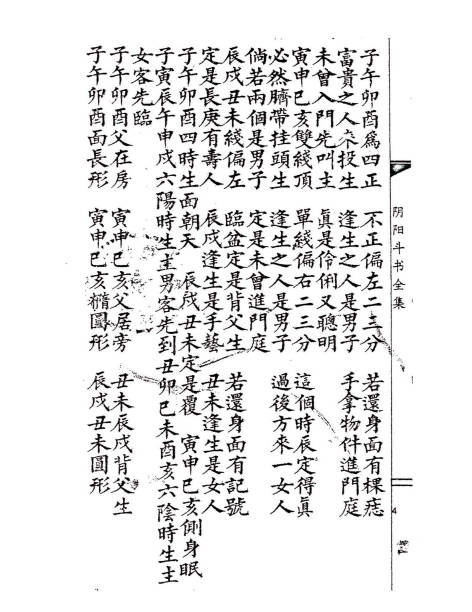 阴阳斗书全集
4
子午卯酉為四正　不正偏左二三分　若還身面有棵痣
富貴之人來投生　逢生之人是男子　手拿物件進門庭
未曾入門先叫主　眞是伶俐又聰明
寅申巳亥雙綫頂　單綫偏右二三分　這個時辰定得眞
必然臍帶挂頭生　逢生之人是男子　過後方來一女人
倘若兩個是男子　定是未曾進門庭
辰戌丑未綫偏左　臨盆定是背父生　若還身面有記號
定是長庚有壽人　辰戌逢生是手藝　丑未逢生是女人
子午卯酉四時生面朝天　辰戌丑未定是覆　寅申巳亥側身眠
子寅辰午申戌六陽時生主男客先到丑卯巳未酉亥六陰時生主
女客先臨
子午卯酉父在房　寅申巳亥父居旁　丑未辰戌背父生
子午卯酉面長形　寅申巳亥橢圓形　辰戌丑未圓形